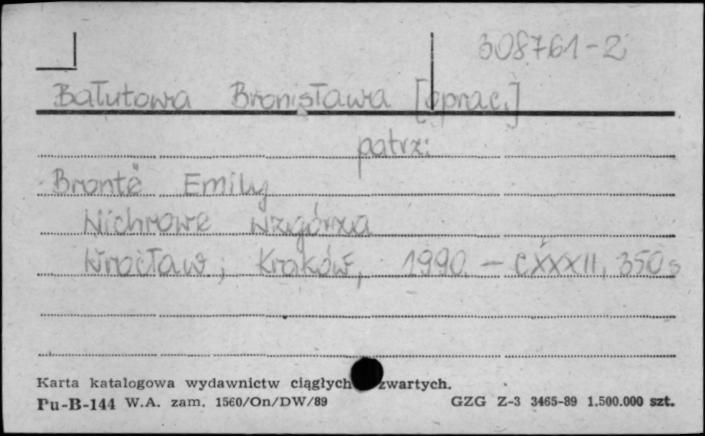 308761-2
Bałutowa Bronisława [oprac.]
patrz:
Brontë Emily
Wichrowe wzgórza
Wrocław; Kraków, 1990. - CXXXII, 350 s
Karta katalogowa wydawnictw ciągłych zwartych.
Pu-B-144 W.A. zam. 1560/On/DW/89 GZG Z-3 3465-89 1.500.000 szt.